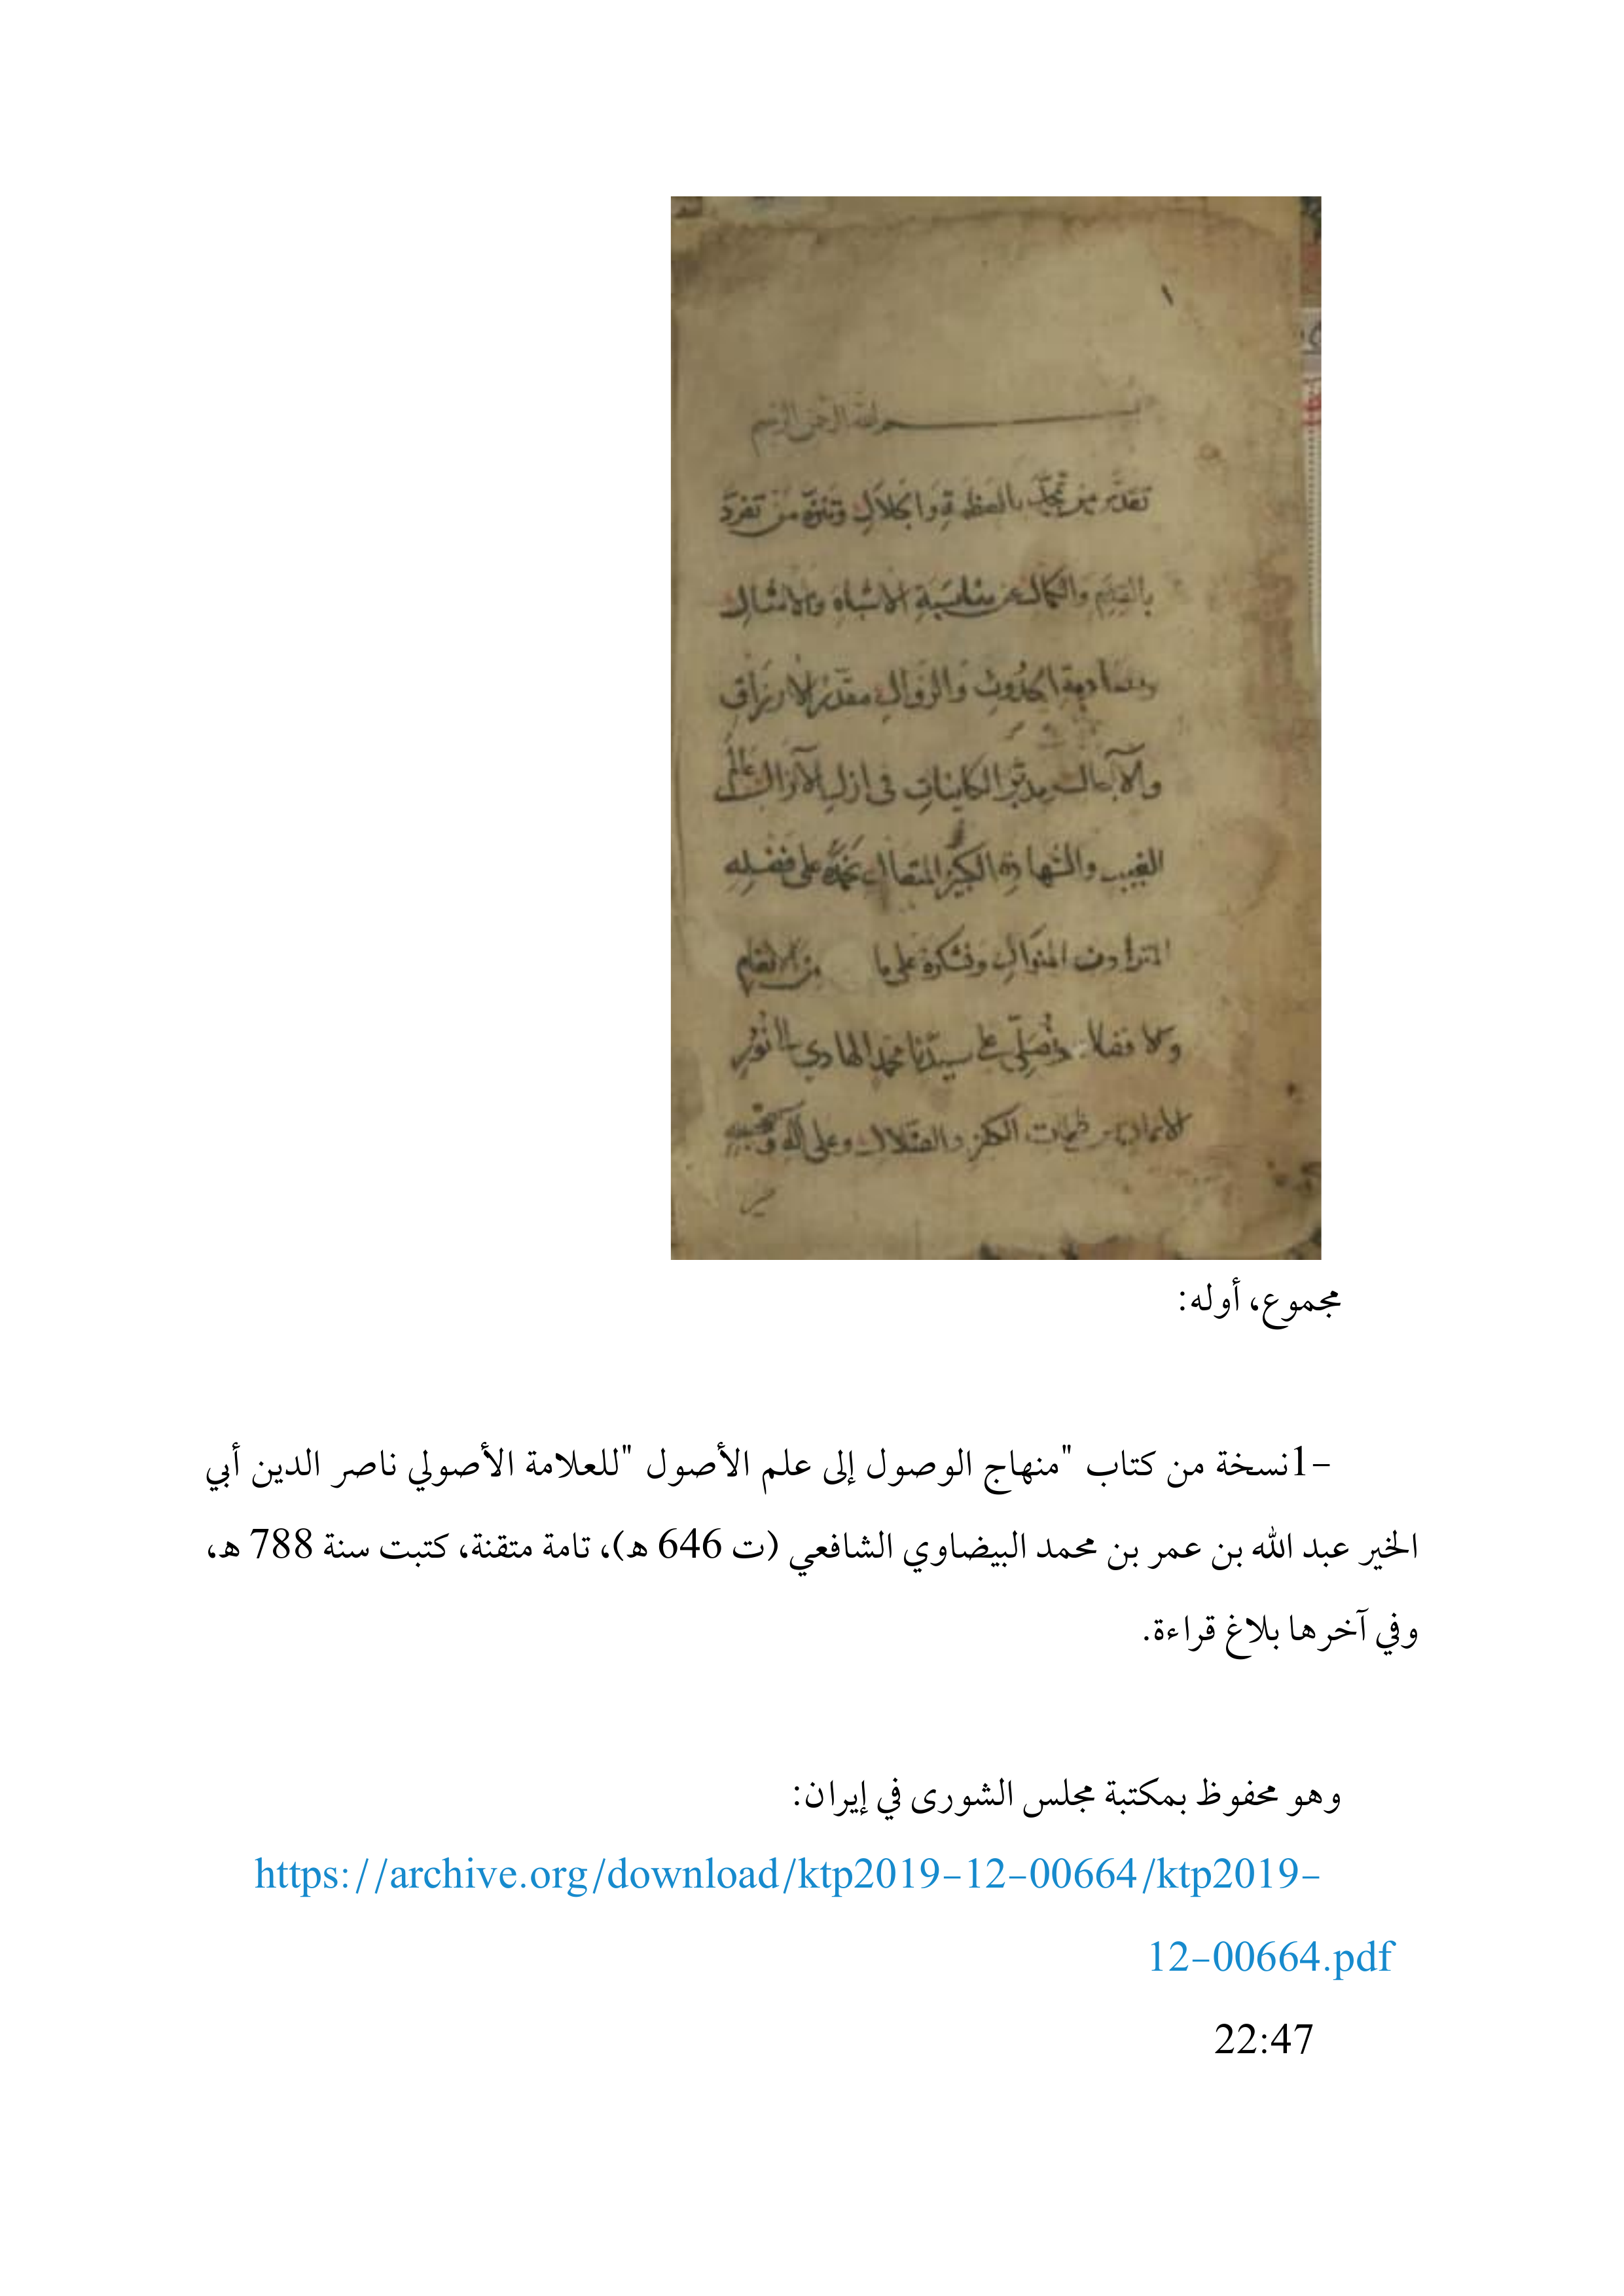 ١
بسم الله الرحمن الرحيم
تقدس من تمجد بالعظمة والجلال وتنزه من تفرد
بالقدم والكمال عن مناسبة الاشباه والامثال
ومصادمة الحدوث والزوال مقدر الارزاق
والآجال مدبر الكاينات في ازل الآزال عالم
الغيب والشهادة الكبير المتعال نحمده على فضله
المترادف المتوال ونشكره على ما من الانعام
والافضال ونصلي على سيدنا محمد الهادي الى نور
الايمان من ظلمات الكفر والضلال وعلى آله وصحبه
مجموع، أوله:
-1نسخة من كتاب "منهاج الوصول إلى علم الأصول "للعلامة الأصولي ناصر الدين أبي
الخير عبد الله بن عمر بن محمد البيضاوي الشافعي (ت 646 هـ)، تامة متقنة، كتبت سنة 788 هـ،
وفي آخرها بلاغ قراءة.
وهو محفوظ بمكتبة مجلس الشورى في إيران:
https://archive.org/download/ktp2019-12-00664/ktp2019-
12-00664.pdf
22:47